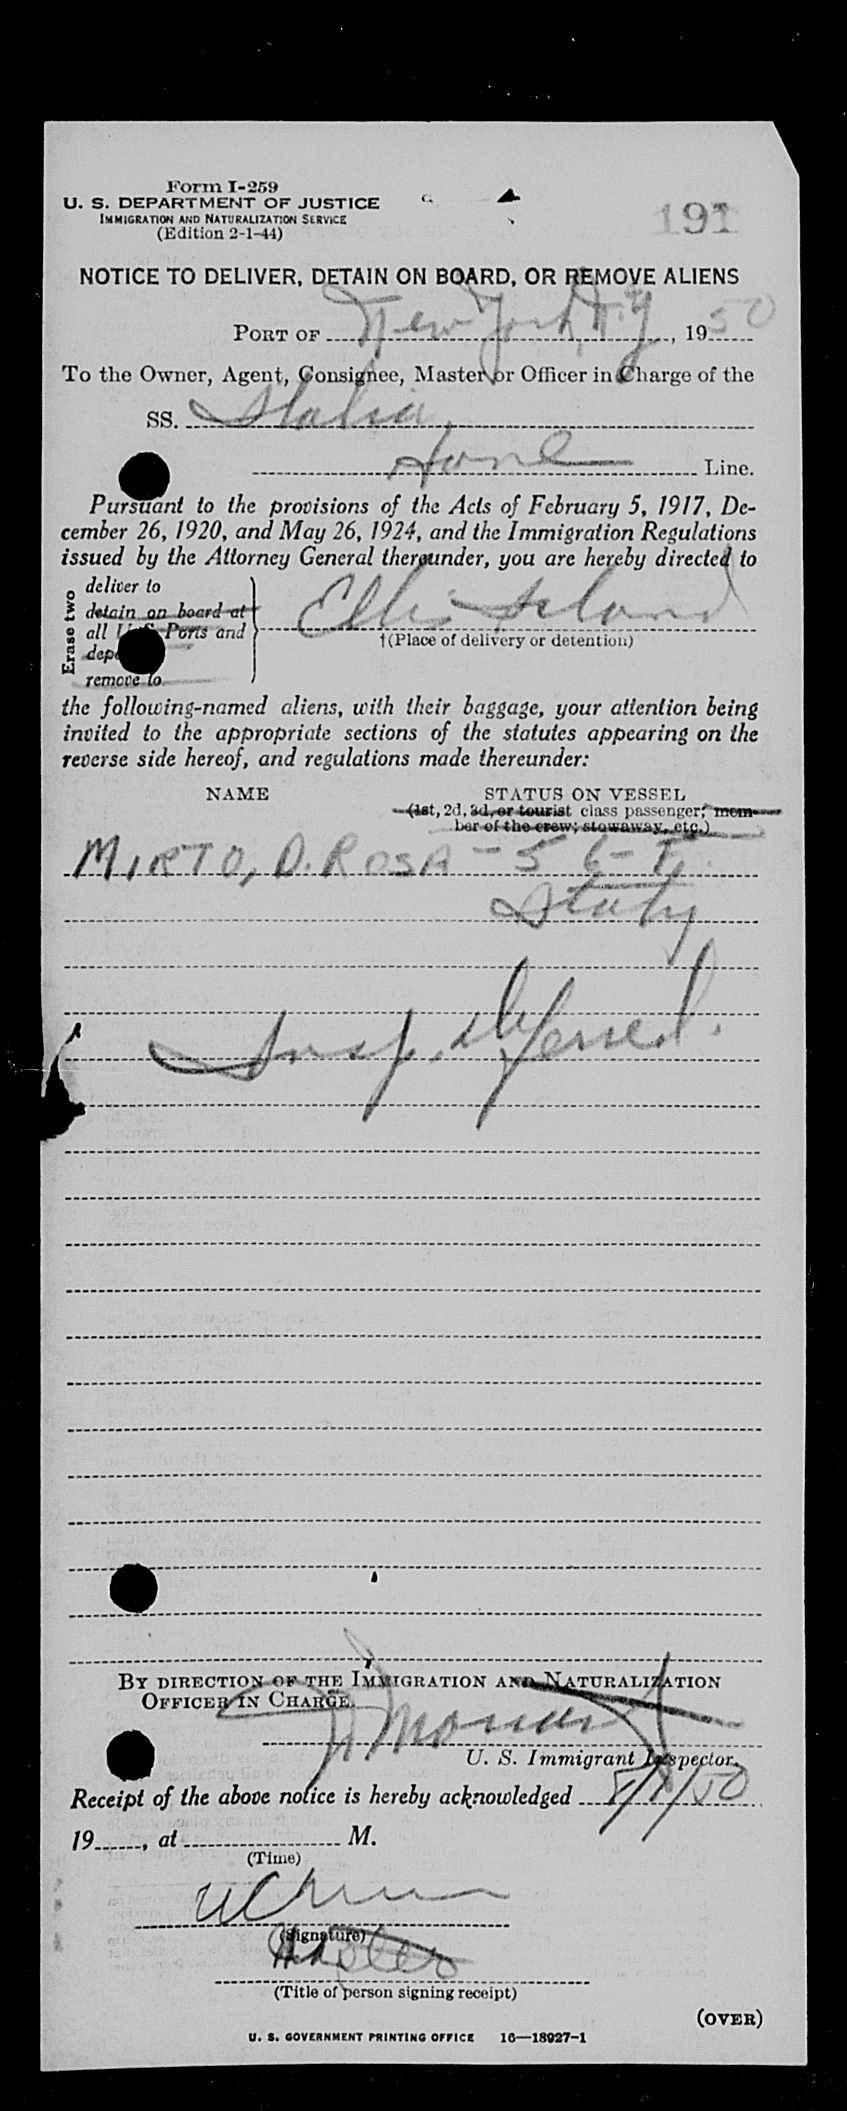 Form I-259
U. S. DEPARTMENT OF JUSTICE
IMMIGRATION AND NATURALIZATION SERVICE
(Edition 2-1-44)
191
NOTICE TO DELIVER, DETAIN ON BOARD, OR REMOVE ALIENS
PORT OF New York, N.Y., 1950
To the Owner, Agent, Consignee, Master or Officer in Charge of the
SS. Italia
Home Line.
Pursuant to the provisions of the Acts of February 5, 1917, De-
cember 26, 1920, and May 26, 1924, and the Immigration Regulations
issued by the Attorney General thereunder, you are hereby directed to
Erase two
deliver to
detain on board at
all U. S. Ports and
remove to
Ellis Island
†(Place of delivery or detention)
the following-named aliens, with their baggage, your attention being
invited to the appropriate sections of the statutes appearing on the
reverse side hereof, and regulations made thereunder:
NAME STATUS ON VESSEL
(1st, 2d, 3d, or tourist class passenger; mem-
ber of the crew; stowaway, etc.)
MIRTO, D. ROSA - 56 - F.
Italy
Insp. deferred.
BY DIRECTION OF THE IMMIGRATION AND NATURALIZATION
OFFICER IN CHARGE.
U. S. Immigrant Inspector.
Receipt of the above notice is hereby acknowledged
19, at M.
(Time)
(Signature)
(Title of person signing receipt)
(OVER)
U. S. GOVERNMENT PRINTING OFFICE 16—18927-1